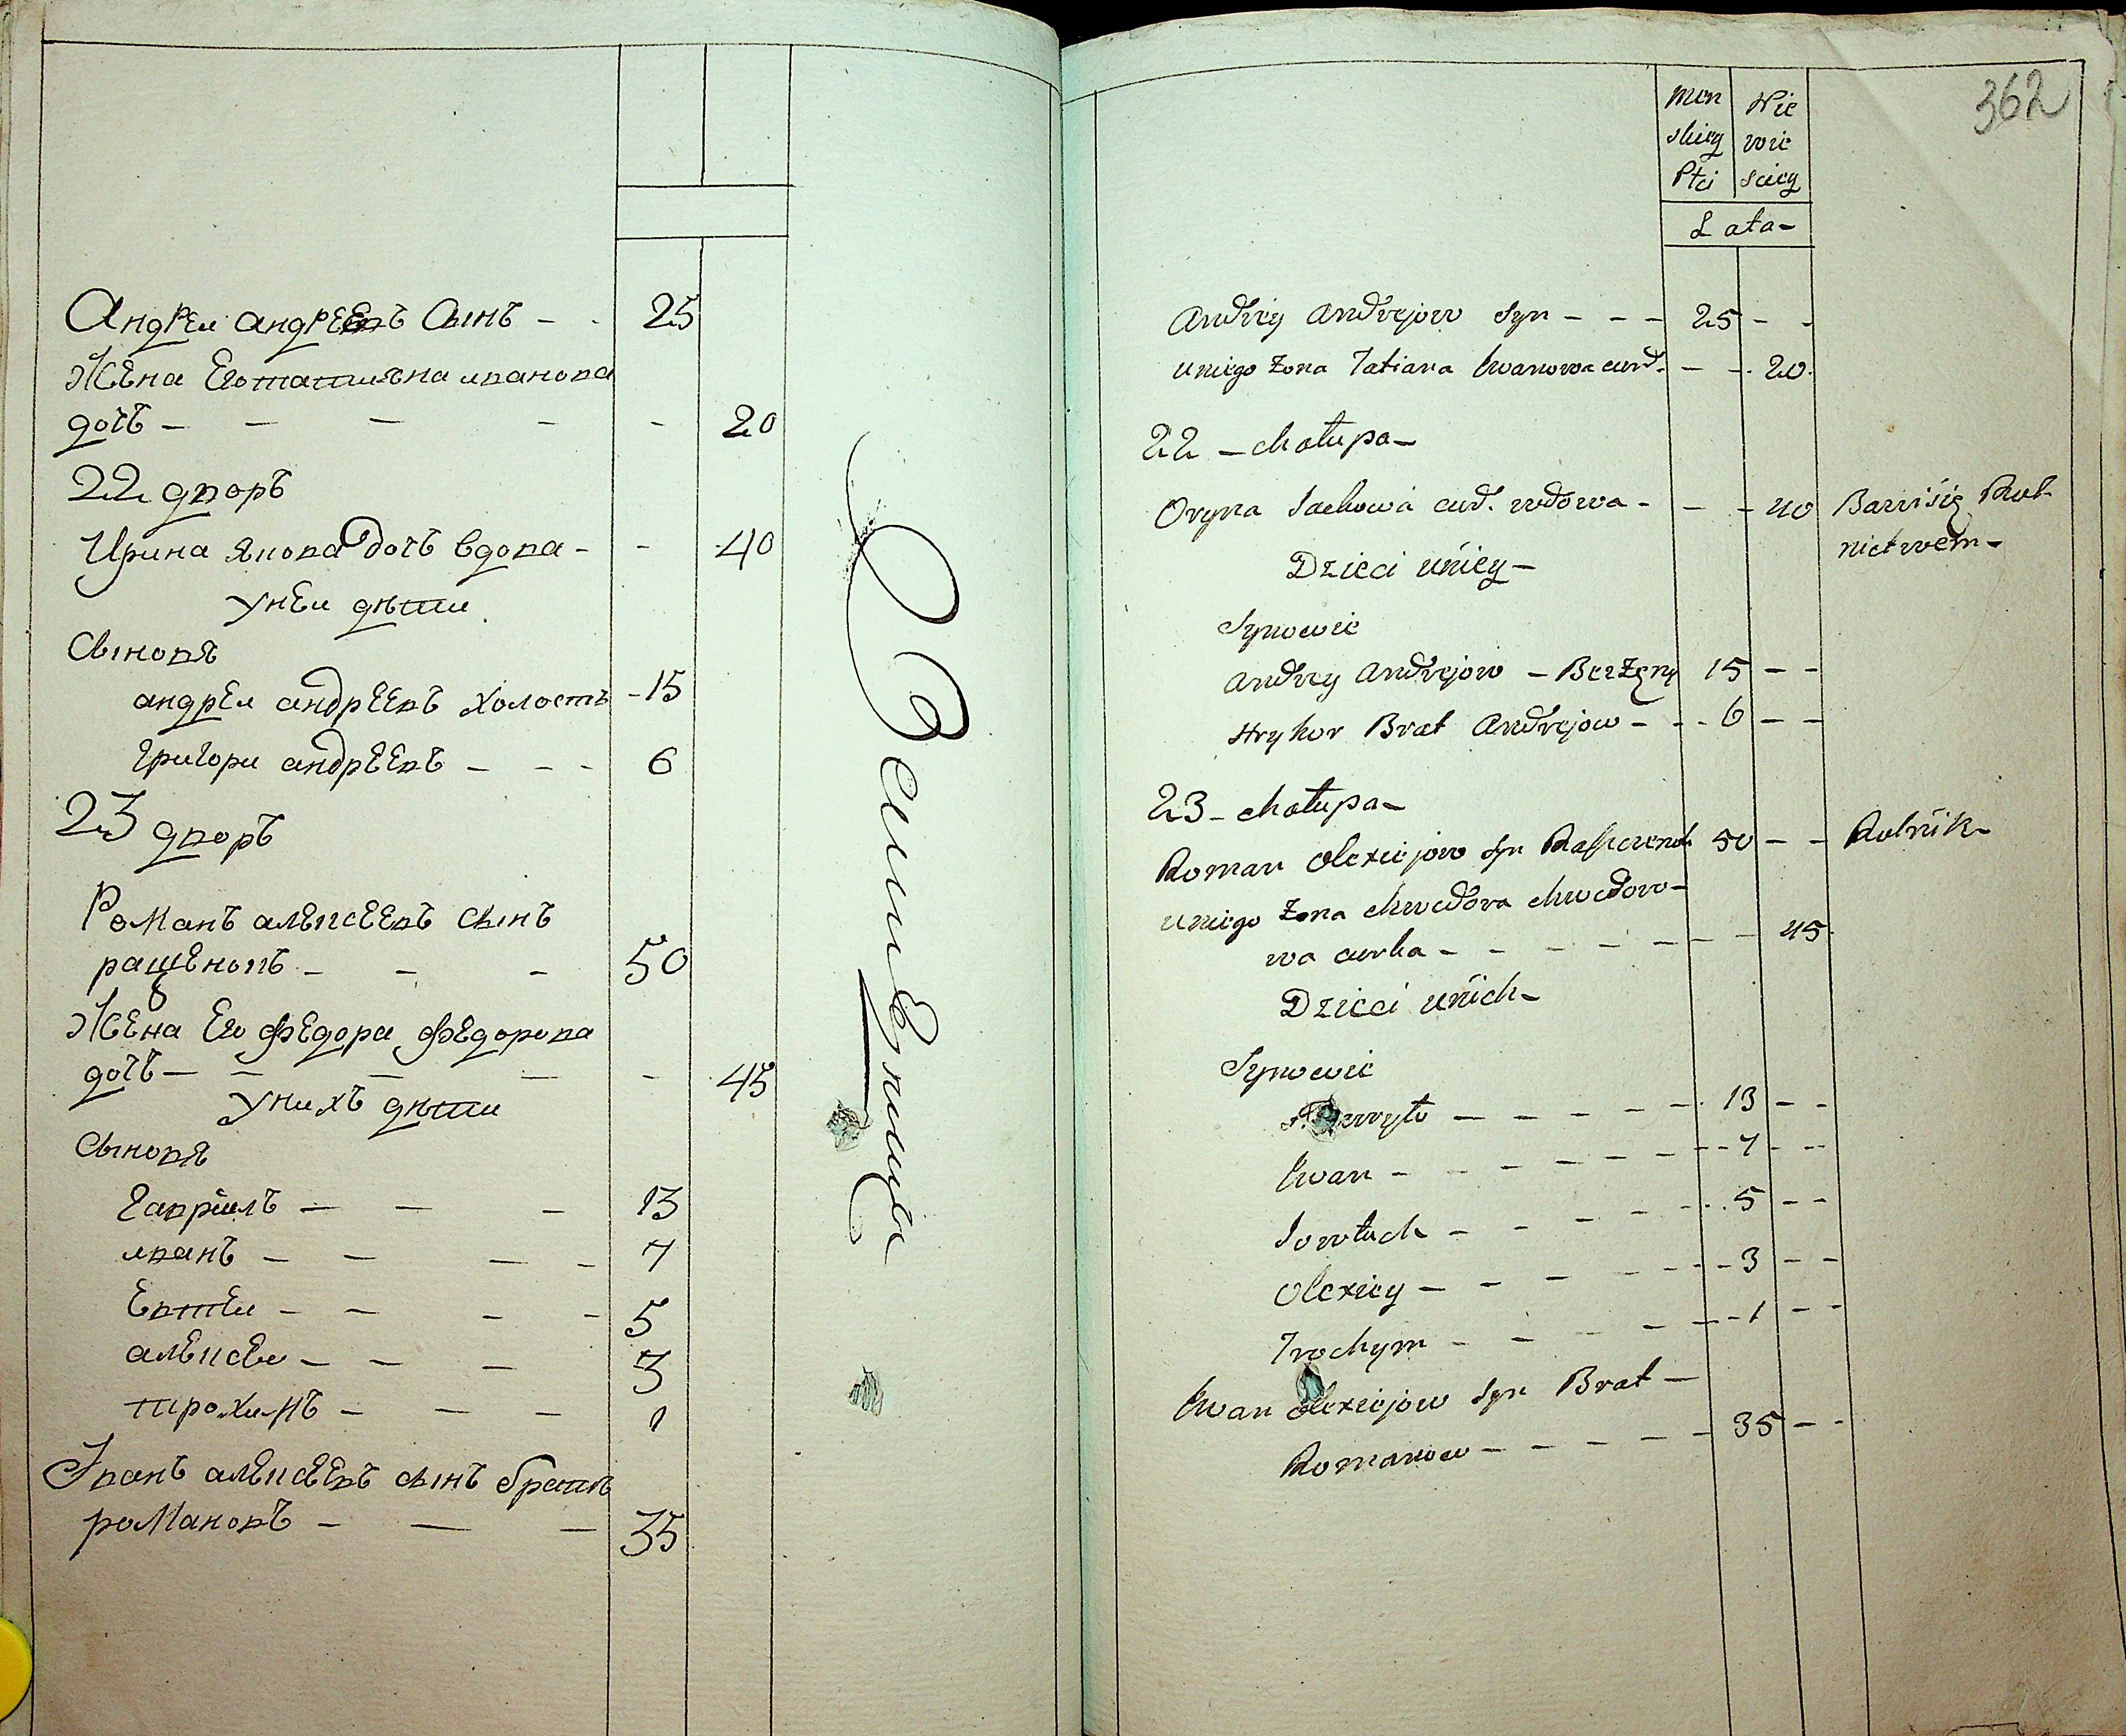 Андреи андреевъ Сынъ - - 25
Жена Его татияна иванова
дочь - - - - - 20
22 дворъ
Ирина Якова дочь вдова - - 40
У неи дѣти
Сыновя
андреи андреевъ холостъ - 15
Григори андреевъ - - - 6
23 дворъ
Романъ алексеевъ сынъ
ращенокъ - - - 50
Жена Его федора федорова
дочь - - - - - 45
У нихъ дѣти
Сыновя
Гавриилъ - - - 13
иванъ - - - - 7
Евтеи - - - - 5
алексеи - - - 3
трохимъ - - - 1
Іванъ алексеевъ сынъ братъ
романовъ - - - 35
362
Męn Nie
skiey wie
Płci sciey
Lata -
Andrey Andrejow Syn - - - 25 - -
u niego Żona Tatiana Iwanowa curd. - - 20
22 - chałupa -
Oryna Jackowa curd. wdowa - - - 40 Bawi się Rol-
nictwem -
Dzieci u niey -
Synowie
Andrey Andrejow - Bezżeny 15 - -
Hryhor Brat Andrejow - - - 6 - -
23 - chałupa -
Roman Olexiejow Syn 50 - - Rolnik -
u niego Żona Chwedora Chwedoro-
wa curka - - - - - - - 45
Dzieci u nich -
Synowie
- - - - - 13 - -
Iwan - - - - - - - 7 - - -
Jowtuch - - - - - - 5 - -
Olexiey - - - - - - 3 - -
Trochym - - - - - - 1 - -
Iwan Olexiejow Syn Brat -
Romanow - - - - - 35 - -